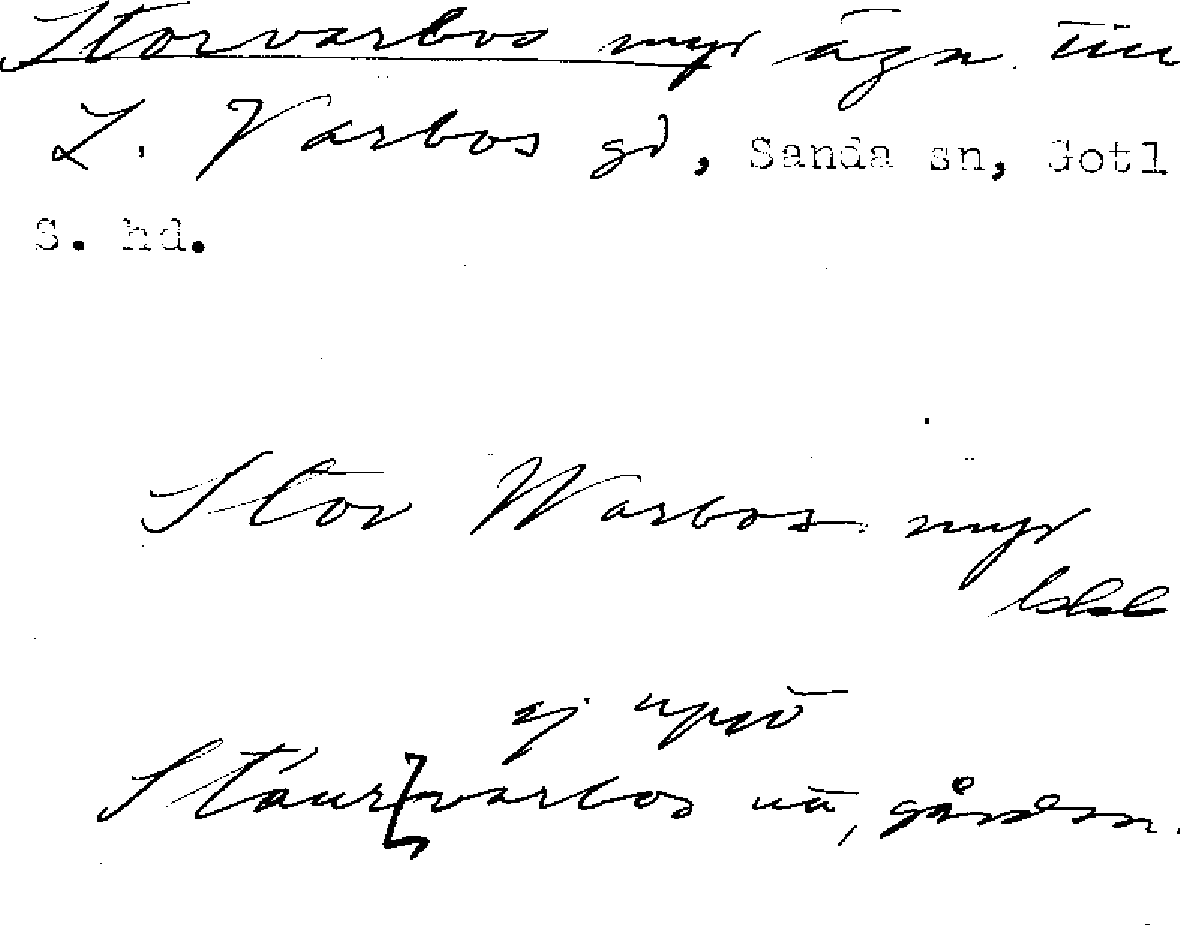 Storvarbos myr äga. till
L. Varbos gd, Sanda sn, Gotl
S. hd.
Stor Warbos myr
ej
Stáur varbos nu, gården.